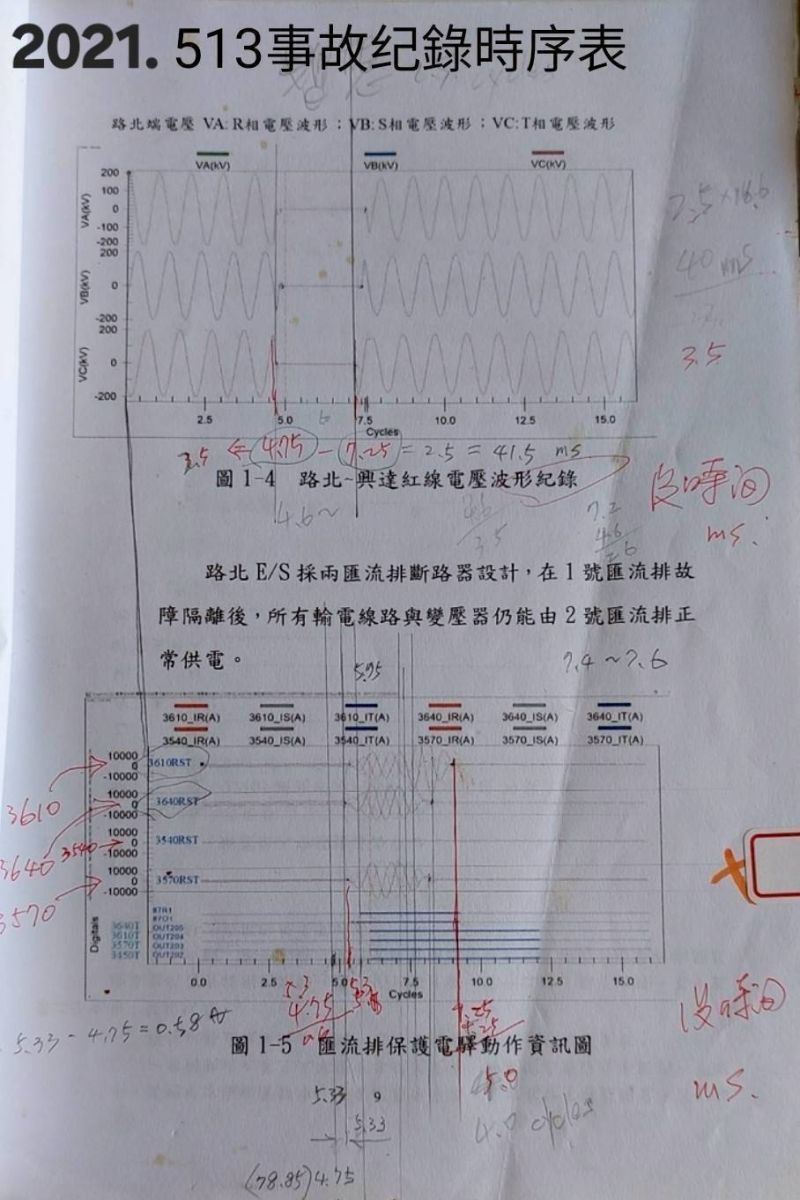 2021. 513事故纪錄時序表
路北端電壓 VA: R相電壓波形；VB: S相電壓波形；VC: T相電壓波形
VA(kV) VB(kV) VC(kV)
200
100
0
-100
-200
VA(kV)
200
0
-200
VB(kV)
200
0
-200
VC(kV)
2.5×16.6
40 ms
3.5
2.5 5.0 7.5 10.0 12.5 15.0
Cycles
3.5 ⇐ 4.75 - 7.25 = 2.5 = 41.5 ms
圖 1-4 路北~興達紅線電壓波形紀錄
4.6~
3.5
7.2
4.6
2.6
沒時间
ms.
路北 E/S 採兩匯流排斷路器設計，在 1 號匯流排故
障隔離後，所有輸電線路與變壓器仍能由 2 號匯流排正
常供電。
5.95
7.4 ~ 7.6
3610_IR(A) 3610_IS(A) 3610_IT(A) 3640_IR(A) 3640_IS(A) 3640_IT(A)
3540_IR(A) 3540_IS(A) 3540_IT(A) 3570_IR(A) 3570_IS(A) 3570_IT(A)
10000
0
-10000
3610RST
10000
0
-10000
3640RST
10000
0
-10000
3540RST
10000
0
-10000
3570RST
3610
3640
3540
3570
Digitals
87R1
87O1
3640T OUT205
3610T OUT204
3570T OUT203
3450T OUT202
0.0 2.5 5.0 7.5 10.0 12.5 15.0
Cycles
5.3
4.75
5.3
9.25
4.25
5.0
沒時间
ms.
5.33 - 4.75 = 0.58
圖 1-5 匯流排保護電驛動作資訊圖
5.33
9
5.33
4.0 cycles
(78.85) 4.75